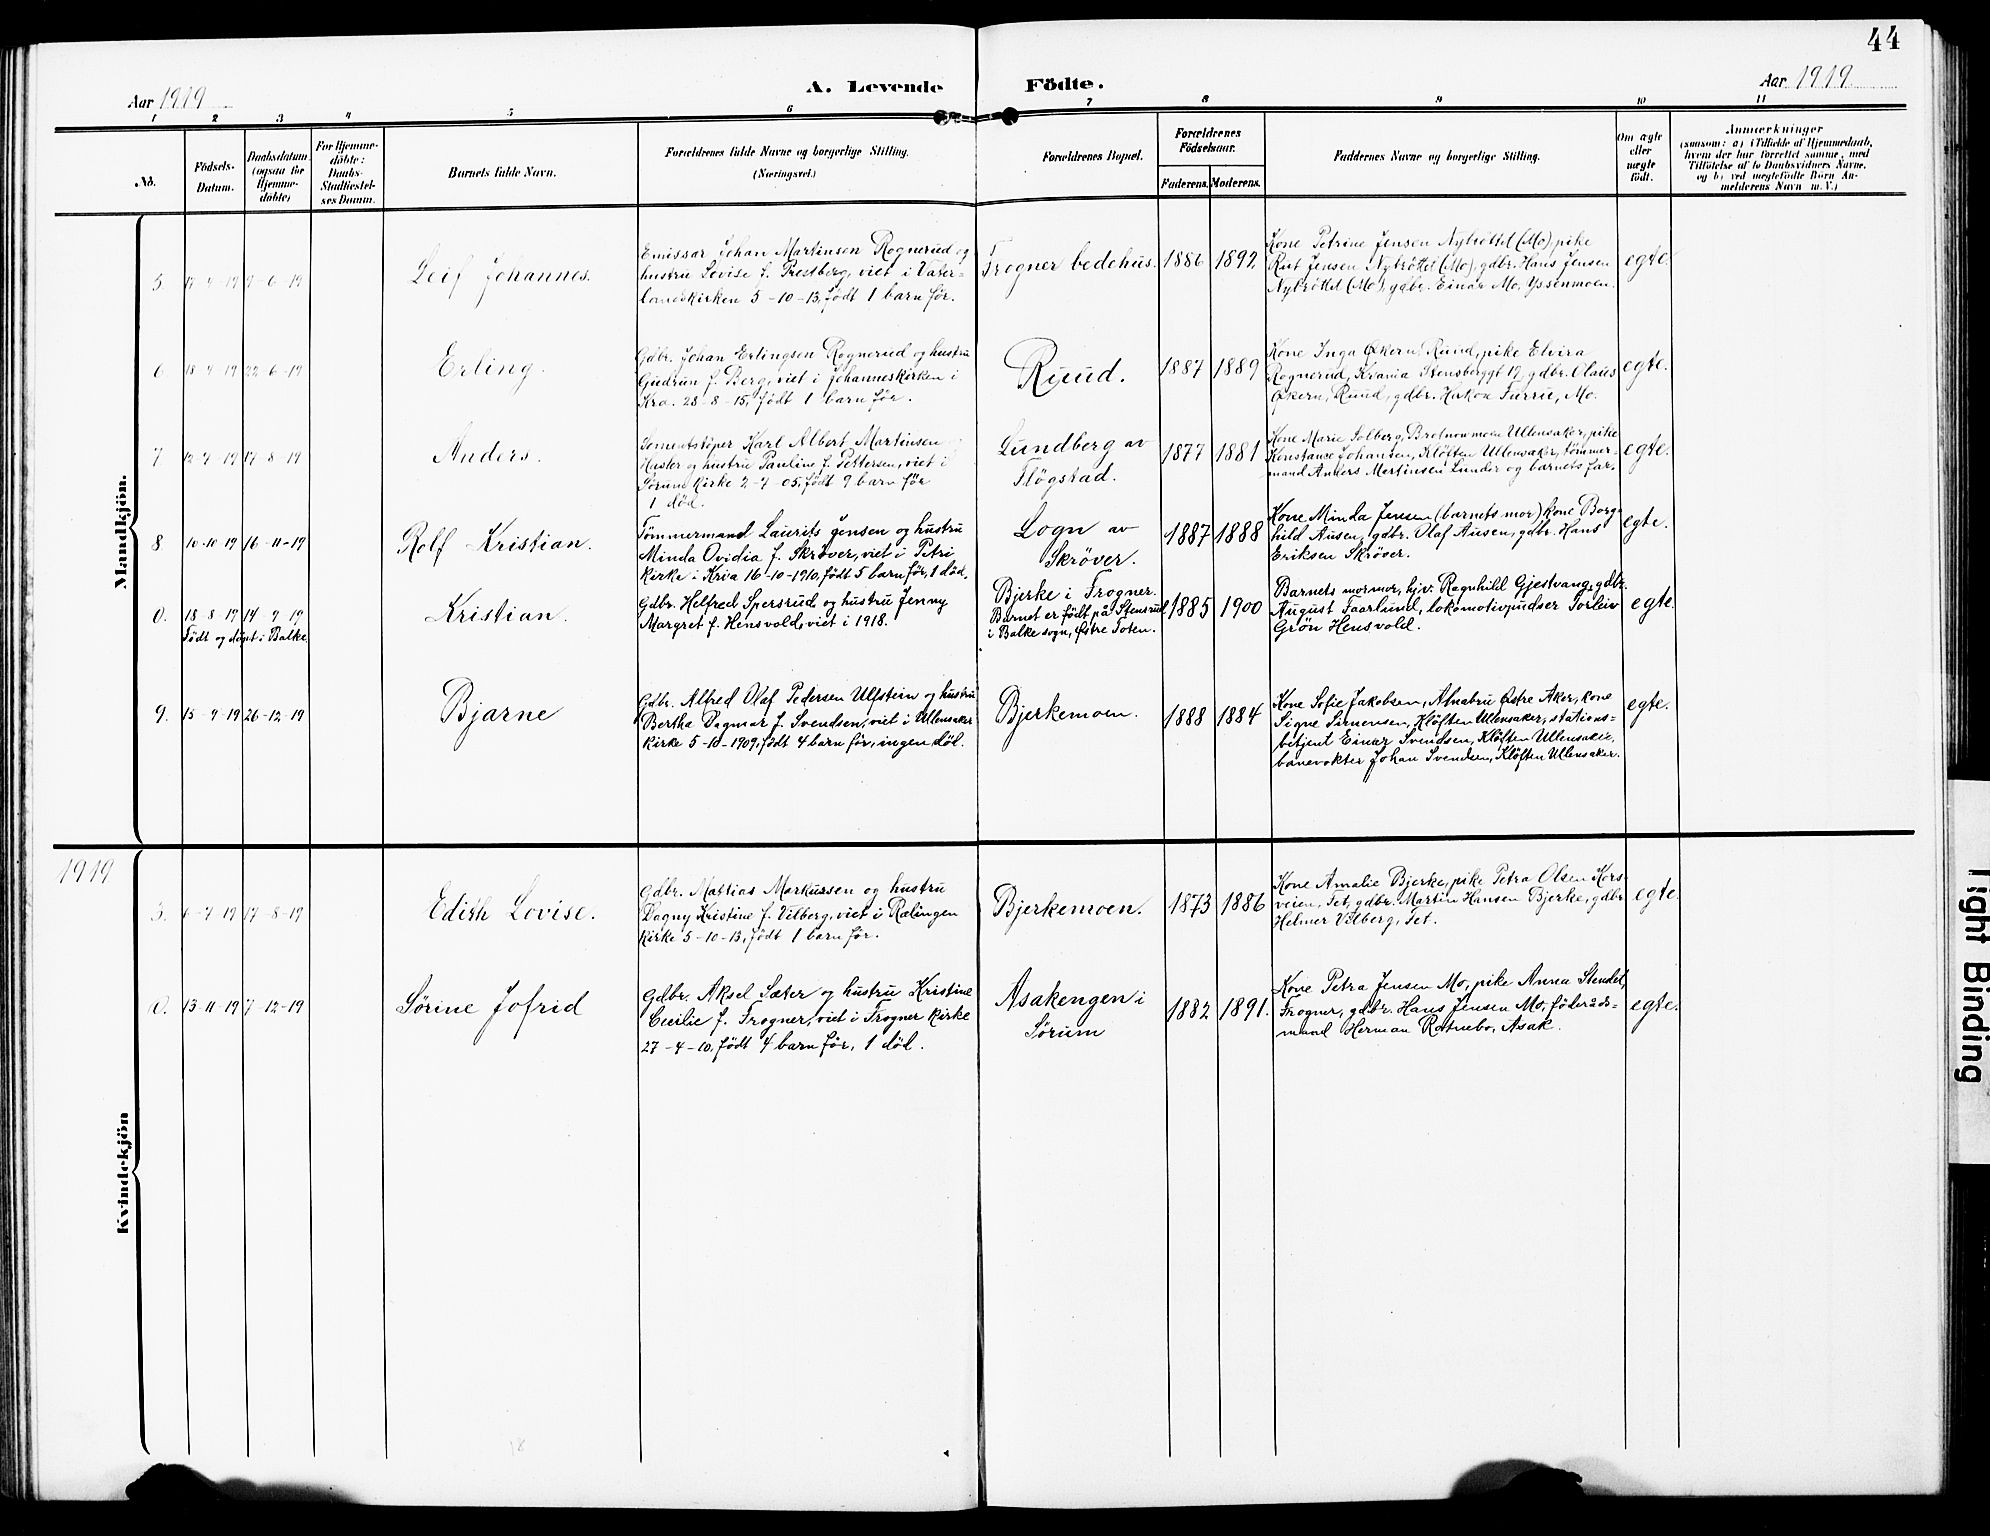 44
Aar 1919
A. Levende
Födte.
Aar 1919
1 2 3 4 5 6 7 8 9 10 11
No.
Födsels-
Datum.
Daabsdatum
(ogsaa for
Hjemme-
döbte)
For Hjemme-
döbte:
Daabs-
Stadfæstel-
ses Datum.
Barnets fulde Navn.
Forældrenes fulde Navne og borgerlige Stilling.
(Næringsvei.)
Forældrenes Bopæl.
Forældrenes
Födselsaar.
Faderens. Moderens.
Faddernes Navne og borgerlige Stilling.
Om ægte
eller
uægte
födt.
Anmærkninger
(saasom: a) i Tilfælde af Hjemmedaab,
hvem der har forrettet samme, med
Tilföielse af to Daabsvidners Navne,
og b) ved uægtefödte Börn An-
melderens Navn m. V.)
Mandkjön.
5.
9-6-19
Leif Johannes.
Emissær Johan Martinsen Rognerud og
hustru Lovise f. Prestberg, viet i Vater-
landskirken 5-10-13, født 1 barn før.
Frogner bedehus.
1886 1892
Kone Petrine Jensen Nybrøttet (Mo), pike
Rut Jensen Nybrøttet (Mo), gdbr. Hans Jensen
Nybrøttet (Mo), gdbr. Einar Mo, Yssenmoen.
egte.
6
22-6-19
Erling.
Gdbr. Johan Erlingsen Rognerud og hustru
Gudrun f. Berg, viet i Johanneskirken i
Kra. 28-8-15, født 1 barn før.
Ruud.
1887 1889
Kone Inga Økern, Ruud, pike Elvira
Rognerud, Krania Stensberggt 17, gdbr. Olaus
Økern, Ruud, gdbr. Hakon Furrie, Mo.
egte.
7
17-8-19
Anders.
Sementstøper Karl Albert Martinsen
Hasler og hustru Pauline f. Pettersen, viet i
Sørum kirke 2-7-05, født 9 barn før
1 død.
Lundberg av
Fløgstad.
1877 1881
Kone Marie Solberg, Brotnowmoen Ullensaker, pike
Konstance Johansen, Kløften Ullensaker, tømmer-
mand Anders Martinsen Lunder og barnets far.
egte.
8
10-10-19 16-11-19
Rolf Kristian.
Tømmermand Laurits Jensen og hustru
Minda Ovidia f. Skrøver, viet i Petri
kirke i Kria 16-10-1910, født 5 barn før, 1 død.
Logn av
Skrøver.
1887 1888
Kone Minda Jensen (barnets mor) kone Borg-
hild Ausen, gdbr. Olaf Ausen, gdbr. Hans
Eriksen Skrøver.
egte.
0.
18-8-19 14-9-19
Født og døpt i Balke
Kristian.
Gdbr. Helfred Spersrud og hustru Jenny
Margret f. Hensvold, viet i 1918.
Bjerke i Frogner.
Barnet er født på Stensrud
i Balke sogn, Østre Toten.
1885 1900
Barnets mormor, hjv. Ragnhild Gjestvang, gdbr.
August Faarlund, lokomotivpudser Torleiv
Grøn Hensvold.
egte.
9.
15-9-19 26-12-19
Bjarne
Gdbr. Alfred Olaf Pedersen Ulfstein og hustru
Bertha Dagmar f. Svendsen, viet i Ullensaker
kirke 5-10-1909, født 4 barn før, ingen død.
Bjerkemoen.
1888 1884
Kone Sofie Jakobsen, Alnabru Østre Aker, kone
Signe Simensen, Kløften Ullensaker, stations-
betjent Einar Svendsen, Kløften Ullensaker,
banevokter Johan Svendsen, Kløften Ullensaker.
egte.
1919
Kvindekjön
3.
17-8-19
Edith Lovise.
Gdbr. Mattias Markussen og hustru
Dagny Kristine f. Vilberg, viet i Rælingen
kirke 5-10-13, født 1 barn før.
Bjerkemoen.
1873 1886
Kone Amalie Bjerke, pike Petra Olsen Kors-
veien, Fet, gdbr. Martin Hansen Bjerke, gdbr
Helmer Vilberg, Fet.
egte.
0.
13-11-19 7-12-19
Sørine Jofrid
Gdbr. Aksel Sæter og hustru Kristine
Cecilie f. Frogner, viet i Frogner kirke
27-4-10, født 4 barn før, 1 død.
Asakengen i
Sørum
1882 1891.
Kone Petra Jensen Mo, pike Anna Stendet,
Frogner, gdbr. Hans Jensen Mo, føderåds-
mand Herman Ratnebo, Asak.
egte.
18
Tight Binding